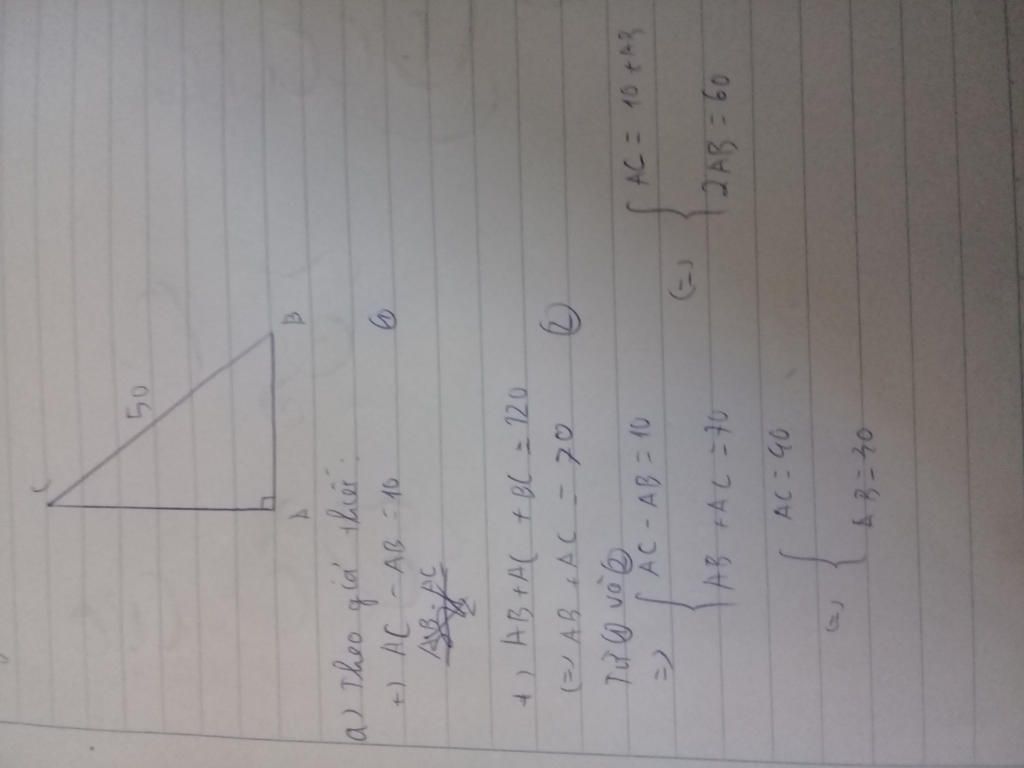 C
50
A
B
a) Theo giả thiết:
+) AC - AB = 10 (1)
+) AB + AC + BC = 120
(=) AB + AC = 70 (2)
Từ (1) và (2)
=) { AC - AB = 10 (=) { AC = 10 + AB
AB + AC = 70 2AB = 60
(=) { AC = 40
AB = 30